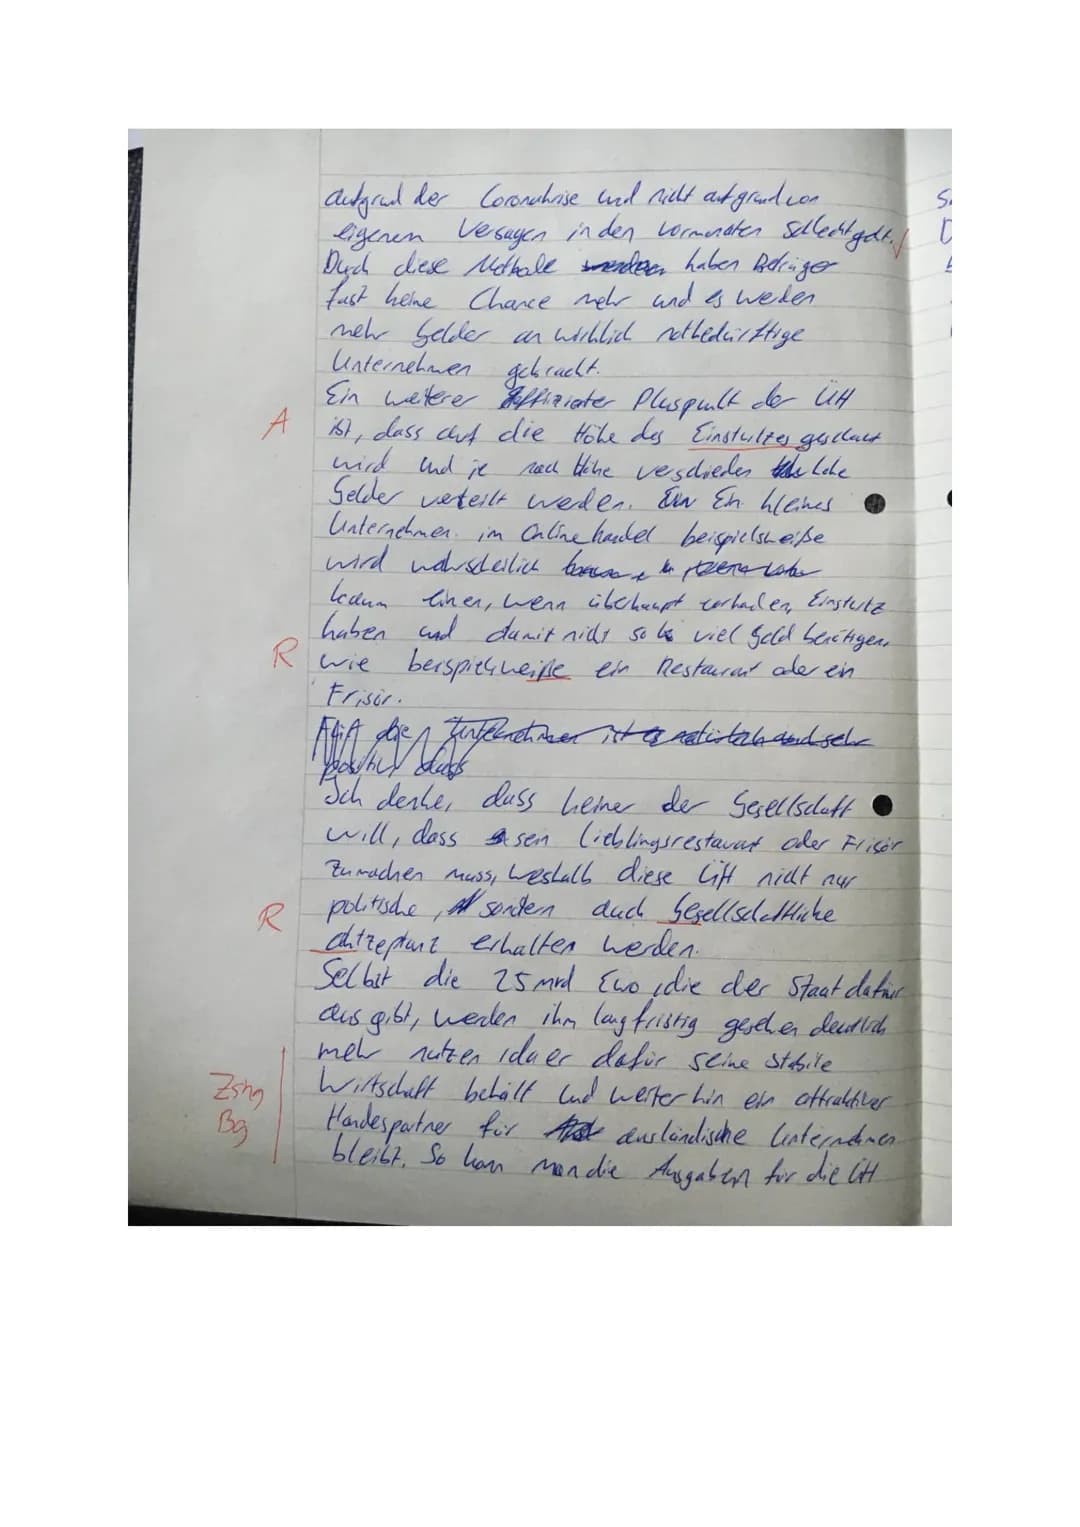 aufgrund der Coronakrise und nicht aufgrund von
eigenem Versagen in den Vormonaten schlecht geht.
Durch diese Methode werden haben Betrüger
fast keine Chance mehr und es werden
mehr Gelder an wirklich notbedürftige
Unternehmen gebracht.
Ein weiterer effizienter Pluspunkt der ÜH
A
ist, dass auf die Höhe des Einstultzes geschaut
wird und je nach Höhe verschieden hohe
Gelder verteilt werden. Ein kleines
Unternehmen im Onlinehandel beispielsweiße
wird wahrscheilich
kaum einen, wenn überhaupt vorhanden, Einsturtz
haben und damit nicht so viel Geld benötigen,
R
wie beispielsweiße ein Restaurant oder ein
Frisör.
Für die Unternehmen ist es natürlich auch sehr
positiv dass
Ich denke, dass keiner der Gesellschaft
will, dass sein Lieblingsrestaurant oder Frisör
zumachen muss, weshalb diese ÜH nicht nur
politische, sondern auch Gesellschaftliche
R
aktzeptanz erhalten werden.
Selbst die 25 mrd Euro, die der Staat dafür
aus gibt, werden ihm langfristig gesehen deutlich
mehr nutzen, da er dafür seine stabile
Zshg
Wirtschaft behält und weiterhin ein attraktiver
Bg
Handespartner für ausländische Unternehmen
bleibt. So kann man die Ausgaben für die ÜH